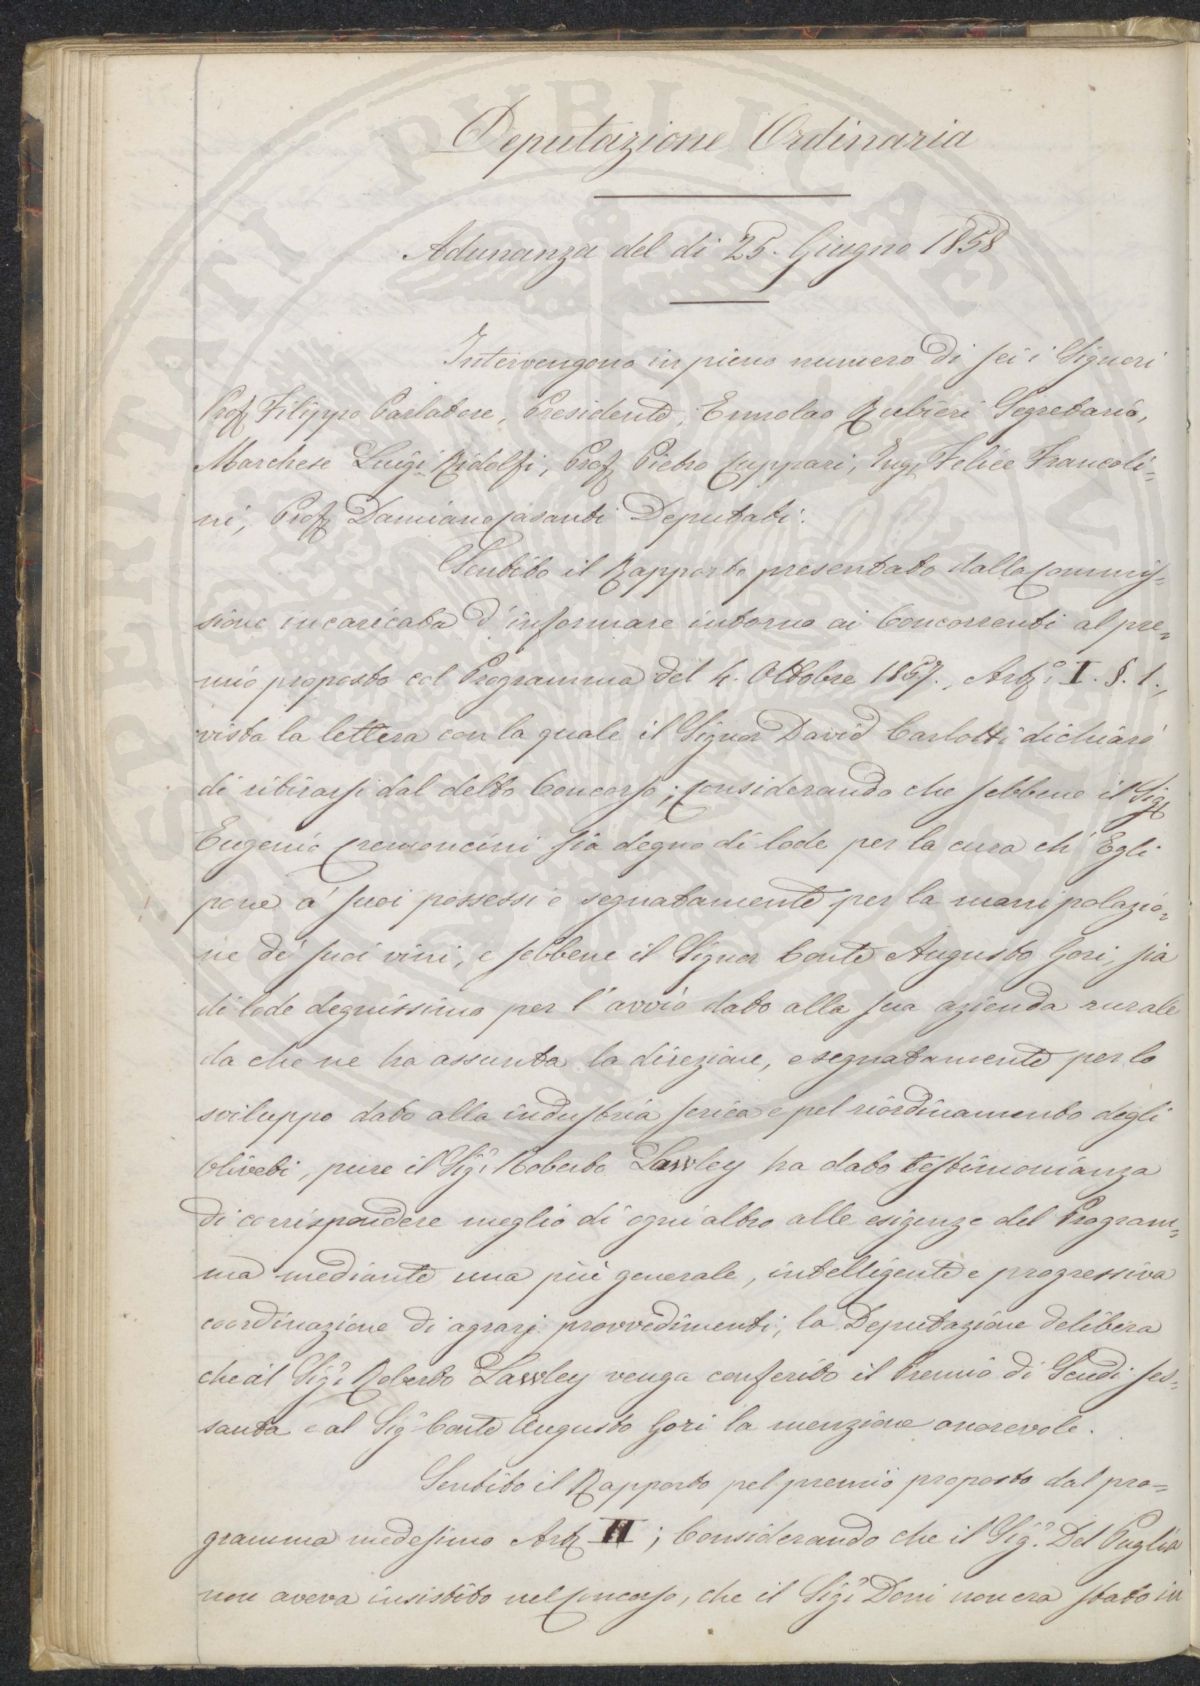 Deputazione Ordinaria
Adunanza del di 25. Giugno 1858
Intervengono in pieno numero di sei i Signori
Prof. Filippo Parlatore, Presidente, Ermolao Rubieri Segretario,
Marchese Luigi Ridolfi, Prof. Pietro Cuppari, Ing. Felice Francoli=
ni, Prof. Damiano Casanti Deputati.
Sentito il Rapporto presentato dalla Commis=
sione incaricata d'informare intorno ai Concorrenti al pre=
mio proposto col Programma del 4. Ottobre 1857., Art.° I. §. 1.,
vista la lettera con la quale il Signor David Carlotti dichiarò
di ritirarsi dal detto Concorso; considerando che sebbene il Sig.
Eugenio Cremoncini sia degno di lode per la cura ch'Egli
pone a' suoi possessi e segnatamente per la manipolazio=
ne de' suoi vini, e sebbene il Signor Conte Augusto Gori, sia
di lode degnissimo per l'avvio dato alla sua azienda rurale
da che ne ha assunta la direzione, e segnatamente per lo
sviluppo dato alla industria serica e pel riordinamento degli
Oliveti, pure il Sig.r Roberto Lawley ha dato testimonianza
di corrispondere meglio di ogni altro alle esigenze del Program=
ma mediante una più generale, intelligente e progressiva
coordinazione di agrarj provvedimenti; la Deputazione delibera
che al Sig.r Roberto Lawley venga conferito il Premio di Scudi ses=
santa e al Sig.r Conte Augusto Gori la menzione onorevole.
Sentito il Rapporto pel premio proposto dal pro=
gramma medesimo Art. II; Considerando che il Sig.r Del Puglia
non aveva insistito nel Concorso, che il Sig.r Doni non era stato in